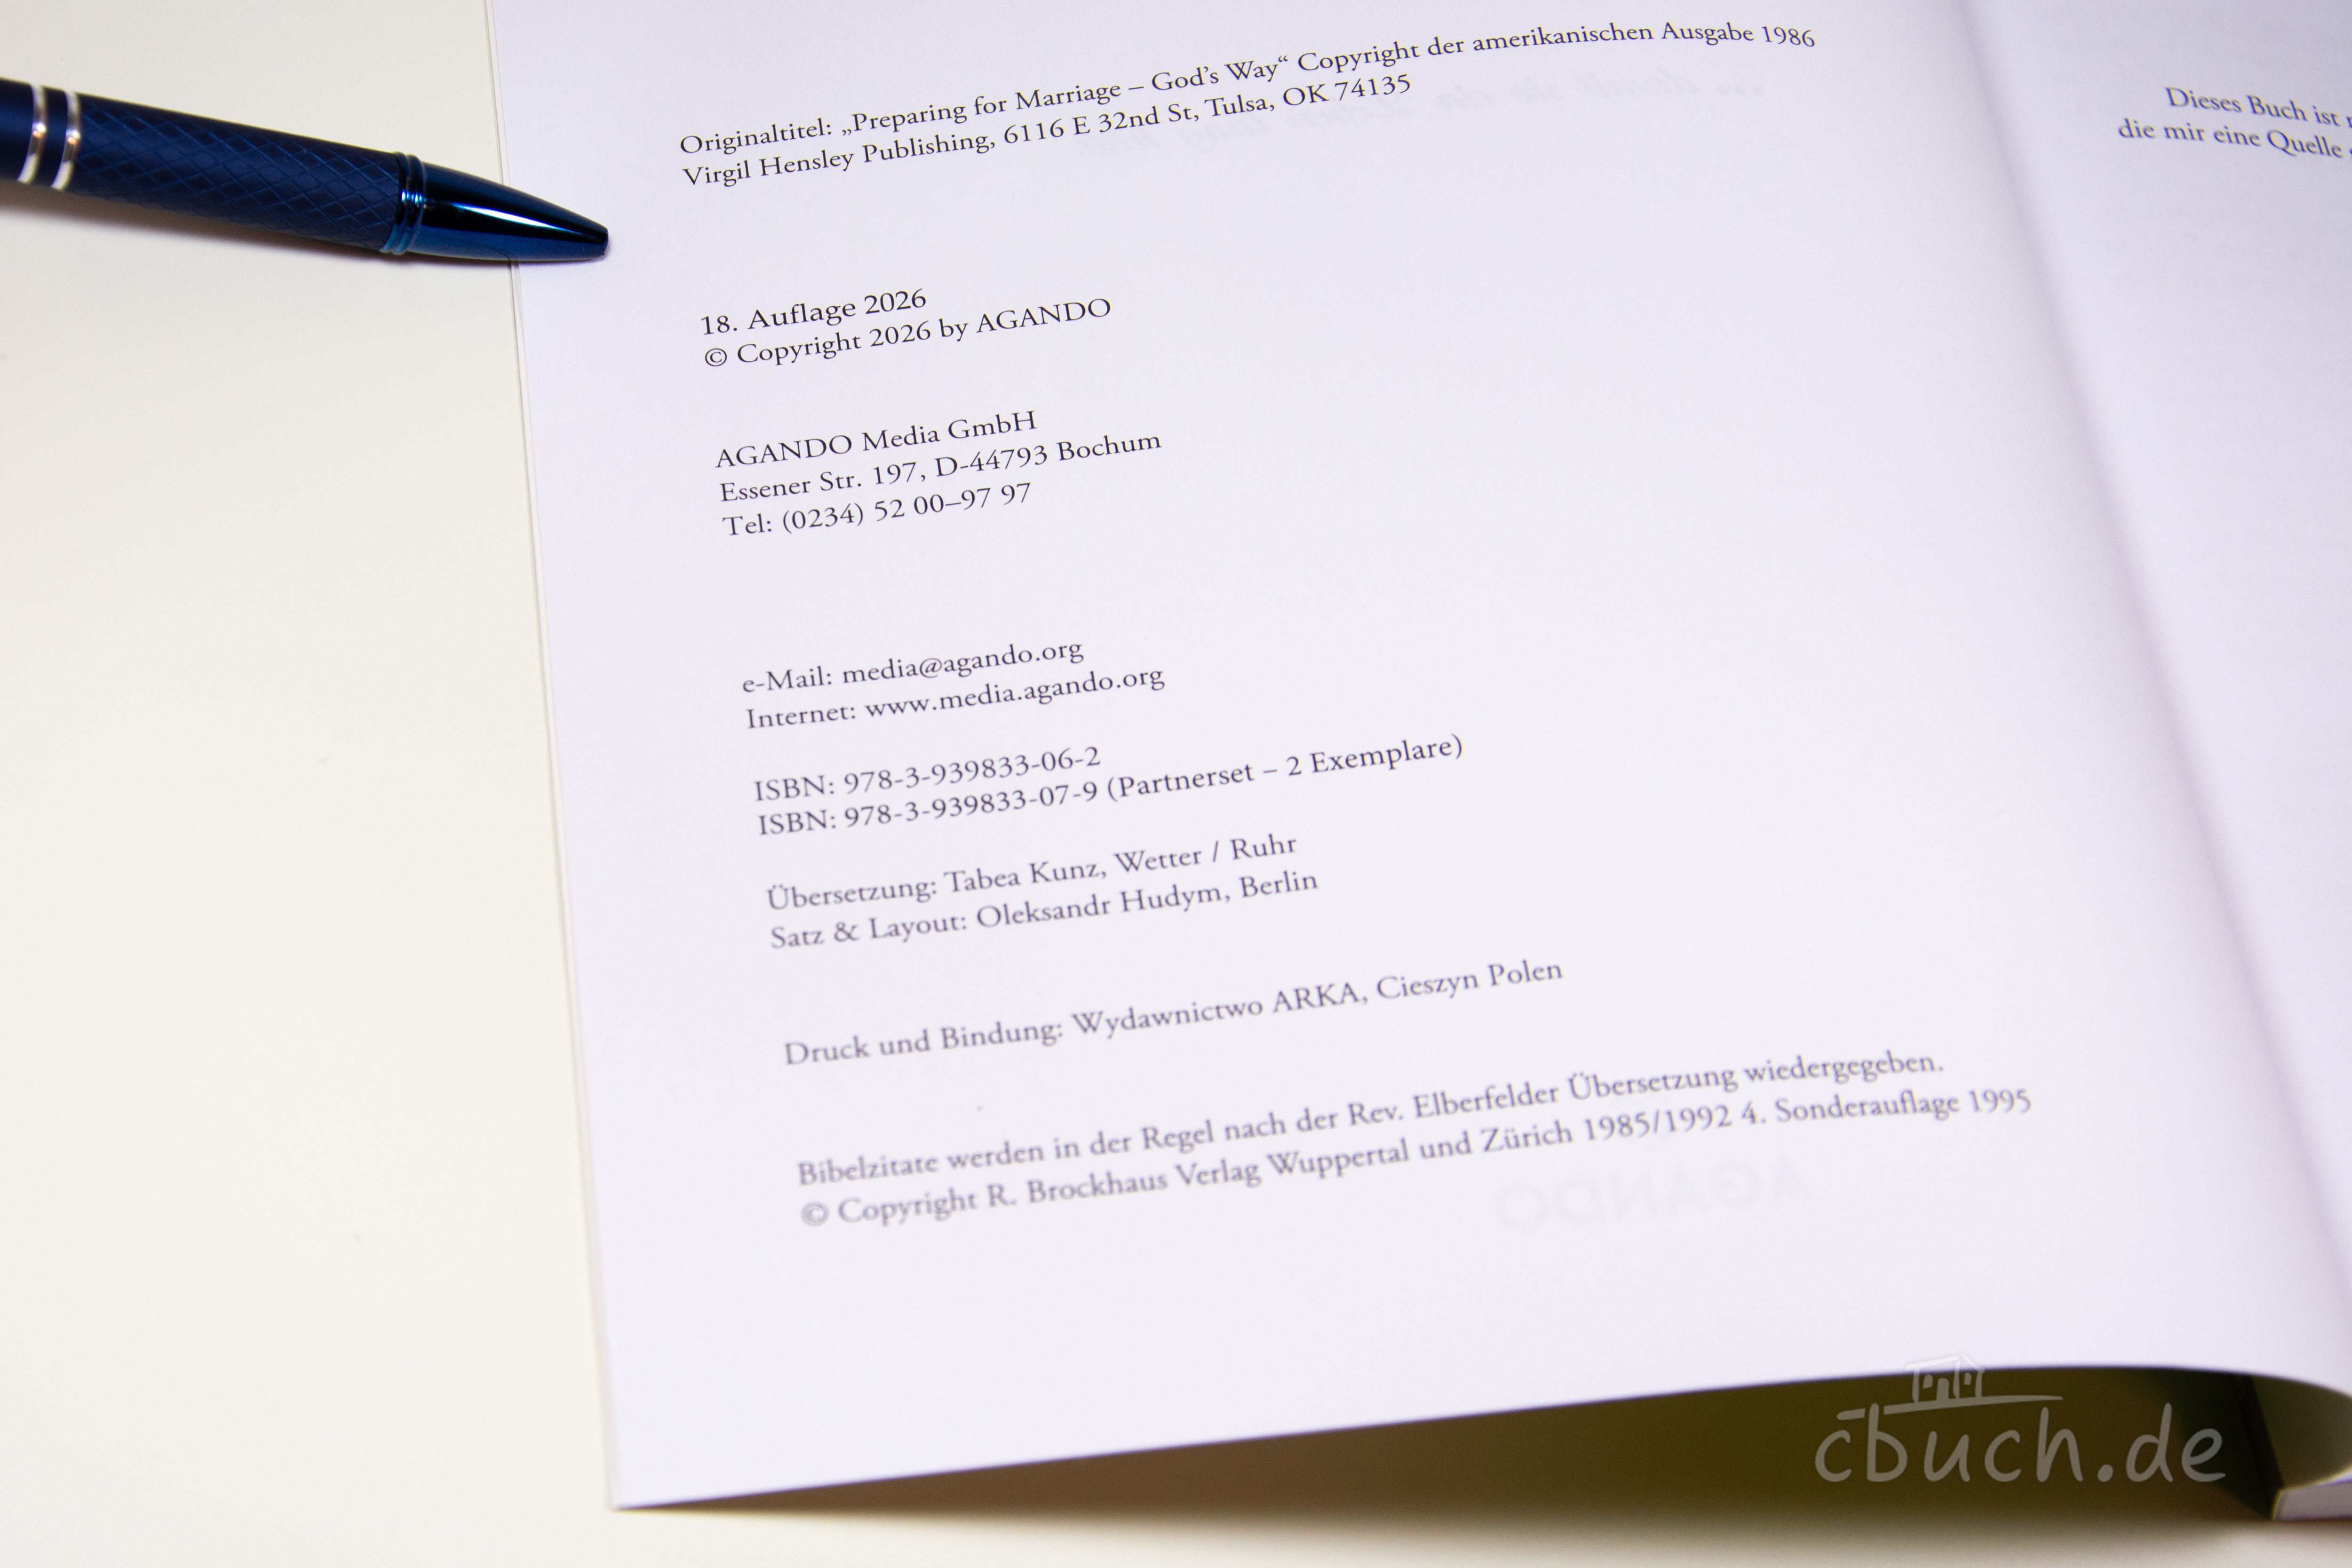 Originaltitel: „Preparing for Marriage – God's Way“ Copyright der amerikanischen Ausgabe 1986
Virgil Hensley Publishing, 6116 E 32nd St, Tulsa, OK 74135
18. Auflage 2026
© Copyright 2026 by AGANDO
AGANDO Media GmbH
Essener Str. 197, D-44793 Bochum
Tel: (0234) 52 00–97 97
e-Mail: media@agando.org
Internet: www.media.agando.org
ISBN: 978-3-939833-06-2
ISBN: 978-3-939833-07-9 (Partnerset – 2 Exemplare)
Übersetzung: Tabea Kunz, Wetter / Ruhr
Satz & Layout: Oleksandr Hudym, Berlin
Druck und Bindung: Wydawnictwo ARKA, Cieszyn Polen
Bibelzitate werden in der Regel nach der Rev. Elberfelder Übersetzung wiedergegeben.
© Copyright R. Brockhaus Verlag Wuppertal und Zürich 1985/1992 4. Sonderauflage 1995
Dieses Buch ist
die mir eine Quelle
AGANDO
cbuch.de